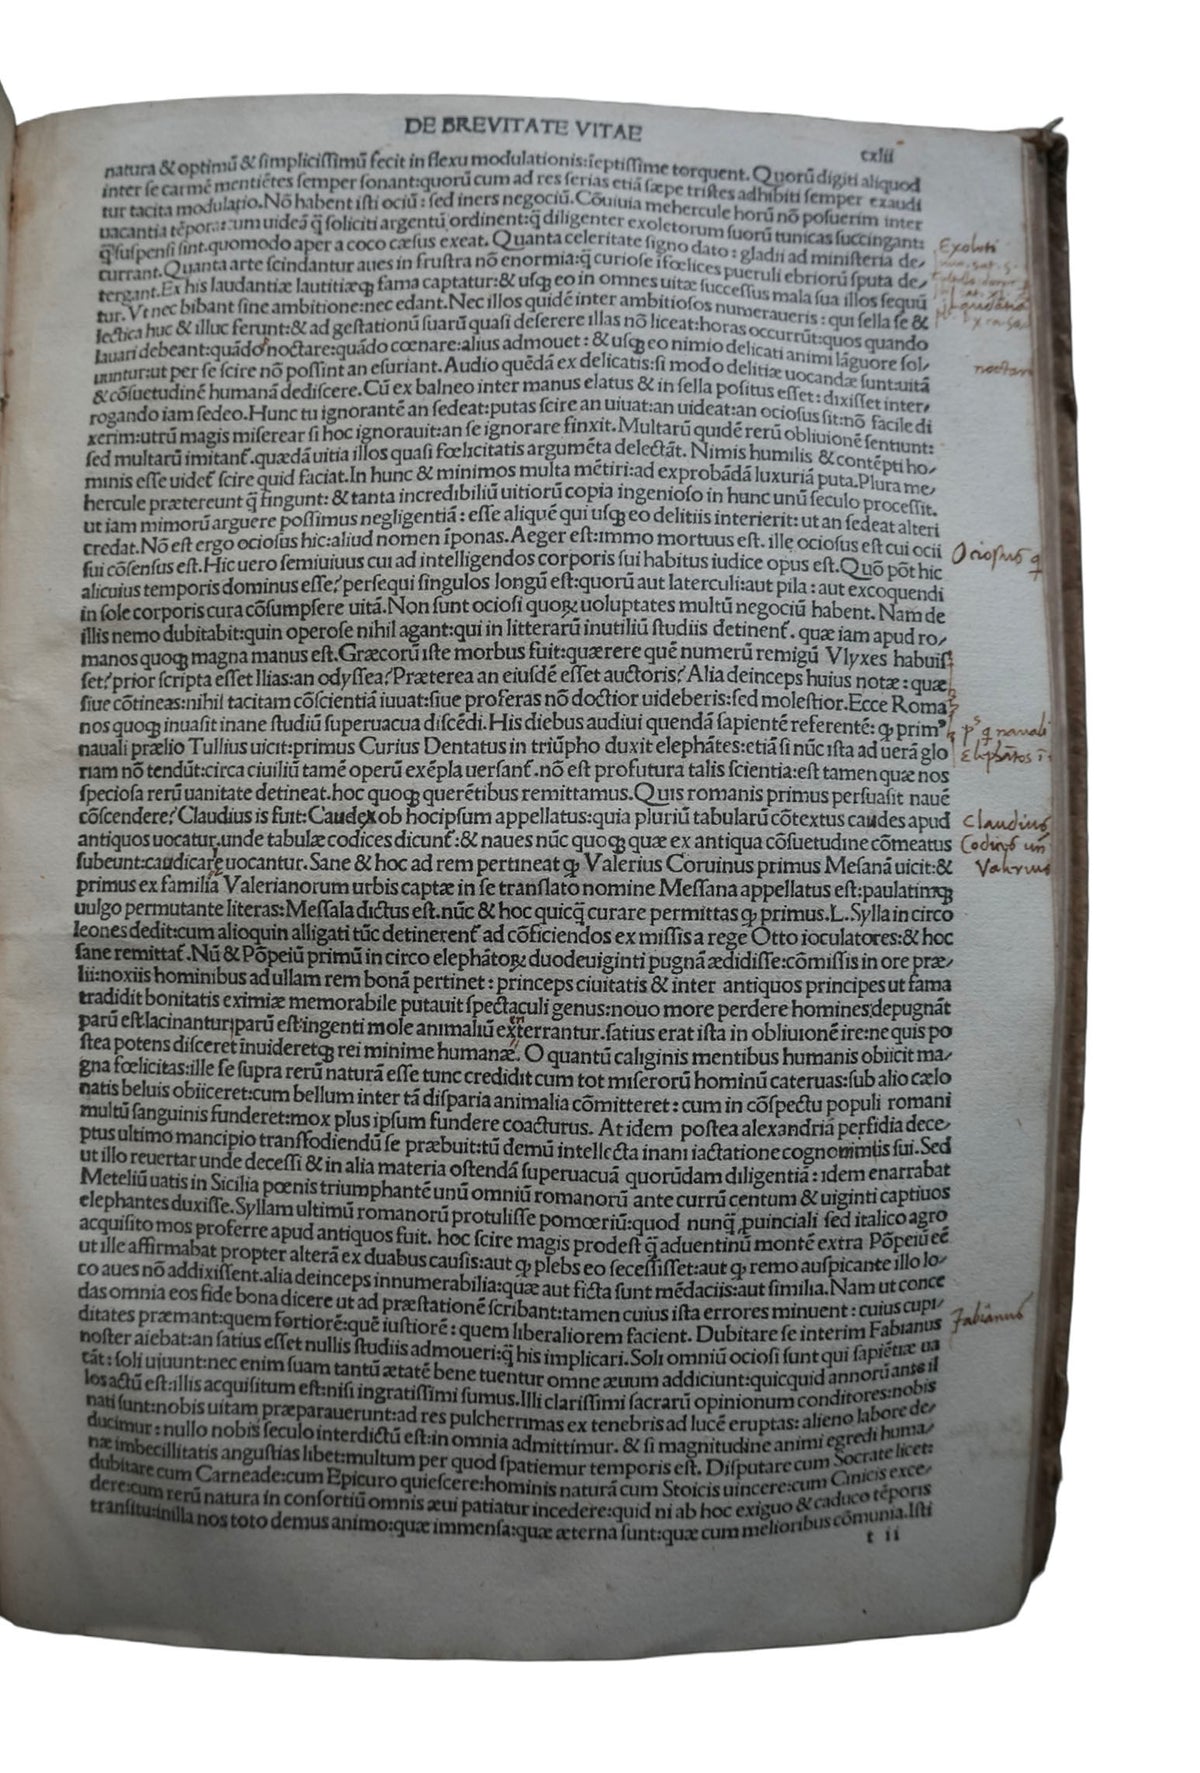 DE BREVITATE VITAE
cxlii
natura & optimū & ſimpliciſſimū fecit in flexu modulationis:īeptiſſime torquent. Quorū digiti aliquod
inter ſe carmē mentiētes ſemper ſonant:quorū cum ad res ſerias etiā ſæpe triſtes adhibiti ſemper exaudi
tur tacita modulatio. Nō habent iſti ociū: ſed iners negociū. Cōuiuia mehercule horū nō poſuerim inter
uacantia tēpora: cum uideā q̄ ſoliciti argentū ordinent:q̄ diligenter exoletorum ſuorū tunicas ſuccingant:
q̄ ſuſpenſi ſint.quomodo aper a coco cæſus exeat. Quanta celeritate ſigno dato: gladii ad miniſteria de⸗
currant. Quanta arte ſcindantur aues in fruſtra nō enormia:q̄ curioſe īfœlices pueruli ebriorū ſputa de⸗
tergant. Ex his laudantiæ lautitiæqꝫ fama captatur:& uſqꝫ eo in omnes uitæ ſucceſſus mala ſua illos ſequū
tur. Vt nec bibant ſine ambitione:nec edant. Nec illos quidē inter ambitioſos numeraueris: qui ſella ſe &
lectica huc & illuc ferunt:& ad geſtationū ſuarū quaſi deſerere illas nō liceat:horas occurrūt:quos quando
lauari debeant:quādo noctare:quādo cœnare:alius admouet: & uſqꝫ eo nimio delicati animi lāguore ſol⸗
uuntur:ut per ſe ſcire nō poſſint an eſuriant. Audio quēdā ex delicatis:ſi modo delitiæ uocandæ ſunt:uitā
& cōſuetudinē humanā dediſcere. Cū ex balneo inter manus elatus & in ſella poſitus eſſet: dixiſſet inter⸗
rogando iam ſedeo. Hunc tu ignorantē an ſedeat:putas ſcire an uiuat:an uideat:an ocioſus ſit:nō facile di
xerim:utrū magis miſerear ſi hoc ignorauit:an ſe ignorare finxit. Multarū quidē rerū obliuionē ſentiunt:
ſed multarū imitant᷑. quædā uitia illos quaſi fœlicitatis argumēta delectāt. Nimis humilis & contēpti ho⸗
minis eſſe uidet᷑ ſcire quid faciat. In hunc & minimos multa mētiri:ad exprobādā luxuriā puta. Plura me⸗
hercule prætereunt q̄ fingunt: & tanta incredibiliū uitiorū copia ingenioſo in hunc unū ſeculo proceſſit.
ut iam mimorū arguere poſſimus negligentiā: eſſe aliquē qui uſqꝫ eo delitiis interierit: ut an ſedeat alteri
credat. Nō eſt ergo ocioſus hic:aliud nomen īponas. Aeger eſt:immo mortuus eſt. ille ocioſus eſt cui ocii
ſui cōſenſus eſt. Hic uero ſemiuiuus cui ad intelligendos corporis ſui habitus iudice opus eſt. Quō pōt hic
alicuius temporis dominus eſſe? perſequi ſingulos longū eſt:quorū aut laterculi:aut pila: aut excoquendi
in ſole corporis cura cōſumpſere uitā. Non ſunt ocioſi quoꝝ uoluptates multū negociū habent. Nam de
illis nemo dubitabit:quin operoſe nihil agant:qui in litterarū inutiliū ſtudiis detinent᷑. quæ iam apud ro⸗
manos quoqꝫ magna manus eſt. Græcorū iſte morbus fuit:quærere quē numerū remigū Vlyxes habuiſ⸗
ſet? prior ſcripta eſſet Ilias:an odyſſea? Præterea an eiuſdē eſſet auctoris? Alia deinceps huius notæ: quæ
ſiue cōtineas:nihil tacitam cōſcientiā iuuat:ſiue proferas nō doctior uideberis:ſed moleſtior. Ecce Roma⸗
nos quoqꝫ inuaſit inane ſtudiū ſuperuacua diſcēdi. His diebus audiui quendā ſapientē referentē: ꝙ prim⁹
nauali prælio Tullius uicit:primus Curius Dentatus in triūpho duxit elephātes:etiā ſi nūc iſta ad uerā glo
riam nō tendūt:circa ciuiliū tamē operū exēpla uerſant᷑. nō eſt profutura talis ſcientia:eſt tamen quæ nos
ſpecioſa rerū uanitate detineat. hoc quoqꝫ querētibus remittamus. Quis romanis primus perſuaſit nauē
cōſcendere? Claudius is fuit: Caudex ob hocipſum appellatus:quia pluriū tabularū cōtextus caudes apud
antiquos uocatur. unde tabulæ codices dicunt᷑: & naues nūc quoqꝫ quæ ex antiqua cōſuetudine cōmeatus
ſubeunt:caudicare uocantur. Sane & hoc ad rem pertineat ꝙ Valerius Coruinus primus Meſanā uicit:&
primus ex familia Valerianorum urbis captæ in ſe tranſlato nomine Meſſana appellatus eſt:paulatimqꝫ
uulgo permutante literas: Meſſala dictus eſt. nūc & hoc quicq̄ curare permittas ꝙ primus. L. Sylla in circo
leones dedit:cum alioquin alligati tūc detinerent᷑ ad cōficiendos ex miſſis a rege Otto ioculatores:& hoc
ſane remittat᷑. Nū & Pōpeiū primū in circo elephātoꝝ duodeuiginti pugnā ædidiſſe:cōmiſſis in ore præ⸗
lii:noxiis hominibus ad ullam rem bonā pertinet: princeps ciuitatis & inter antiquos principes ut fama
tradidit bonitatis eximiæ memorabile putauit ſpectaculi genus:nouo more perdere homines:depugnāt
parū eſt:lacinantur:parū eſt:ingenti mole animaliū exterrantur. ſatius erat iſta in obliuionē ire:ne quis po
ſtea potens diſceret inuideretqꝫ rei minime humanæ. O quantū caliginis mentibus humanis obiicit ma⸗
gna fœlicitas:ille ſe ſupra rerū naturā eſſe tunc credidit cum tot miſerorū hominū cateruas:ſub alio cælo
natis beluis obiiceret:cum bellum inter tā diſparia animalia cōmitteret: cum in cōſpectu populi romani
multū ſanguinis funderet:mox plus ipſum fundere coacturus. At idem poſtea alexandriā perfidia dece⸗
ptus ultimo mancipio tranſfodiendū ſe præbuit:tū demū intellecta inani iactatione cognominis ſui. Sed
ut illo reuertar unde deceſſi & in alia materia oſtendā ſuperuacuā quorūdam diligentiā: idem enarrabat
Meteliū uatis in Sicilia pœnis triumphantē unū omniū romanorū ante currū centum & uiginti captiuos
elephantes duxiſſe. Syllam ultimū romanorū protuliſſe pomœriū:quod nunq̄ ꝓuinciali ſed italico agro
acquiſito mos proferre apud antiquos fuit. hoc ſcire magis prodeſt q̄ aduentinū montē extra Pōpeiū eē
ut ille affirmabat propter alterā ex duabus cauſis:aut ꝙ plebs eo ſeceſſiſſet:aut ꝙ remo auſpicante illo lo⸗
co aues nō addixiſſent. alia deinceps innumerabilia:quæ aut ficta ſunt mēdaciis:aut ſimilia. Nam ut conce
das omnia eos fide bona dicere ut ad præſtationē ſcribant:tamen cuius iſta errores minuent: cuius cupi⸗
ditates præmant:quem fortiorē:quē iuſtiorē: quem liberaliorem facient. Dubitare ſe interim Fabianus
noſter aiebat:an ſatius eſſet nullis ſtudiis admoueri:q̄ his implicari. Soli omniū ocioſi ſunt qui ſapiētiæ ua
cāt: ſoli uiuunt:nec enim ſuam tantū ætatē bene tuentur omne æuum addiciunt:quicquid annorū ante il
los actū eſt:illis acquiſitum eſt:niſi ingratiſſimi ſumus. Illi clariſſimi ſacrarū opinionum conditores:nobis
nati ſunt:nobis uitam præparauerunt:ad res pulcherrimas ex tenebris ad lucē eruptas: alieno labore de⸗
ducimur: nullo nobis ſeculo interdictū eſt:in omnia admittimur. & ſi magnitudine animi egredi huma⸗
næ imbecillitatis anguſtias libet:multum per quod ſpatiemur temporis eſt. Diſputare cum Socrate licet:
dubitare cum Carneade:cum Epicuro quieſcere:hominis naturā cum Stoicis uincere:cum Cinicis exce⸗
dere:cum rerū natura in conſortiū omnis æui patiatur incedere:quid ni ab hoc exiguo & caduco tēporis
tranſitu:in illa nos toto demus animo:quæ immenſa:quæ æterna ſunt:quæ cum melioribus cōmunia. Iſti
t ii
Exoleti
noctare
Ocioſus q
nauali
Elephātos
Claudius
Valerius
Fabianus